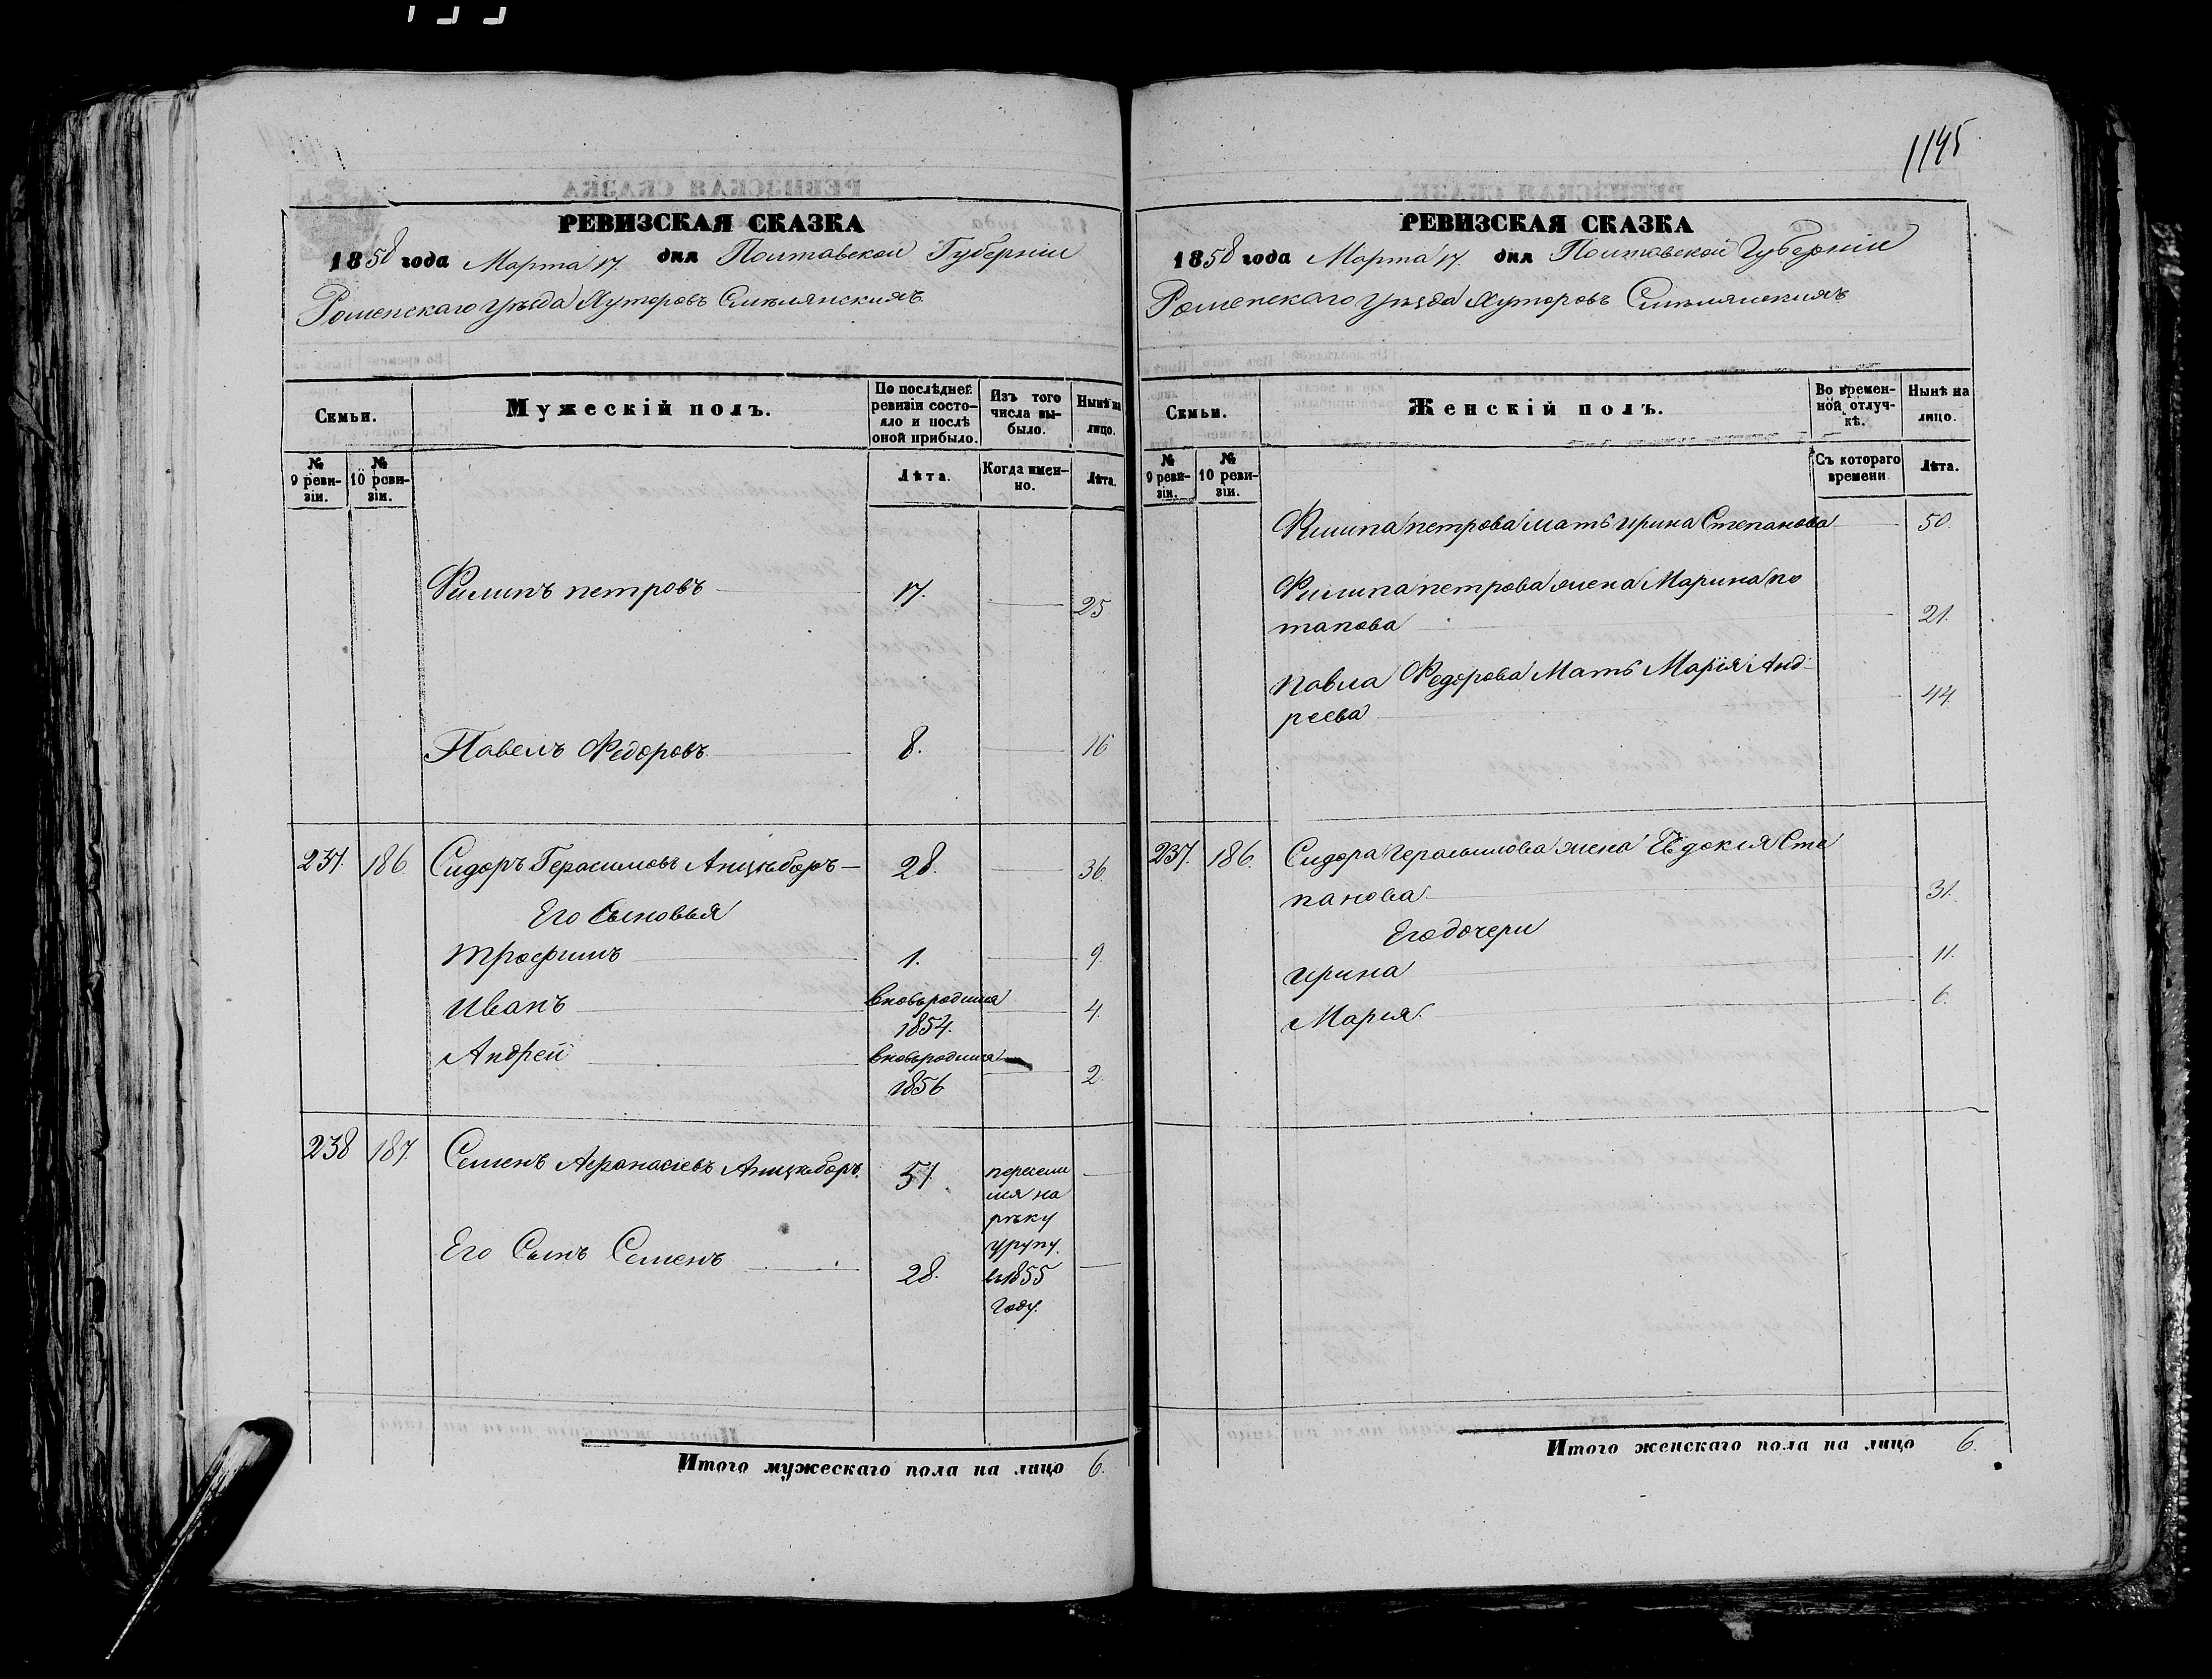 1145
РЕВИЗСКАЯ СКАЗКА
1858 года Марта 17. дня Полтавской Губернии
Роменскаго уѣзда Хуторовъ Смѣлянскихъ
Семьи.
Мужескій полъ.
По послѣдней
ревизіи состо-
яло и послѣ
оной прибыло.
Изъ того
числа вы-
было.
Нынѣ на
лицо.
№
9 реви-
зіи.
№
10 реви-
зіи.
Лѣта.
Когда имен-
но.
Лѣта.
Филипъ петровъ 17. 25.
Павелъ Федоровъ 8. 16
237. 186. Сидоръ Герасимовъ 28. 36.
Его Сыновья
трофимъ 1. 9.
Иванъ вновьродился 4.
1854.
Андрей вновьродился 2.
1856
238 187. Семенъ Афанасіевъ 57.
пересели
лся на
рѣку
урупу.
в1855
году.
Его Сынъ Семенъ 28.
Итого мужескаго пола на лицо 6.
РЕВИЗСКАЯ СКАЗКА
1858 года Марта 17. дня Полтавской Губерніи
Роменскаго уѣзда Хуторовъ Смѣлянскихъ
Семьи.
Женскій полъ.
Во времен-
ной отлуч-
кѣ.
Нынѣ на
лицо.
№
9 реви-
зіи.
№
10 реви-
зіи.
Съ котораго
времени
Лѣта.
Филипа петрова мать ирина Степанова 50.
Филипа петрова жена Марина по
тапова 21.
Павла Федорова Мать Марія Анд-
реева 44.
237. 186. Сидора Герасимова жена Евдокія Сте
панова 31.
Его дочери
ирина 11.
Марія. 6.
Итого женскаго пола на лицо 6.